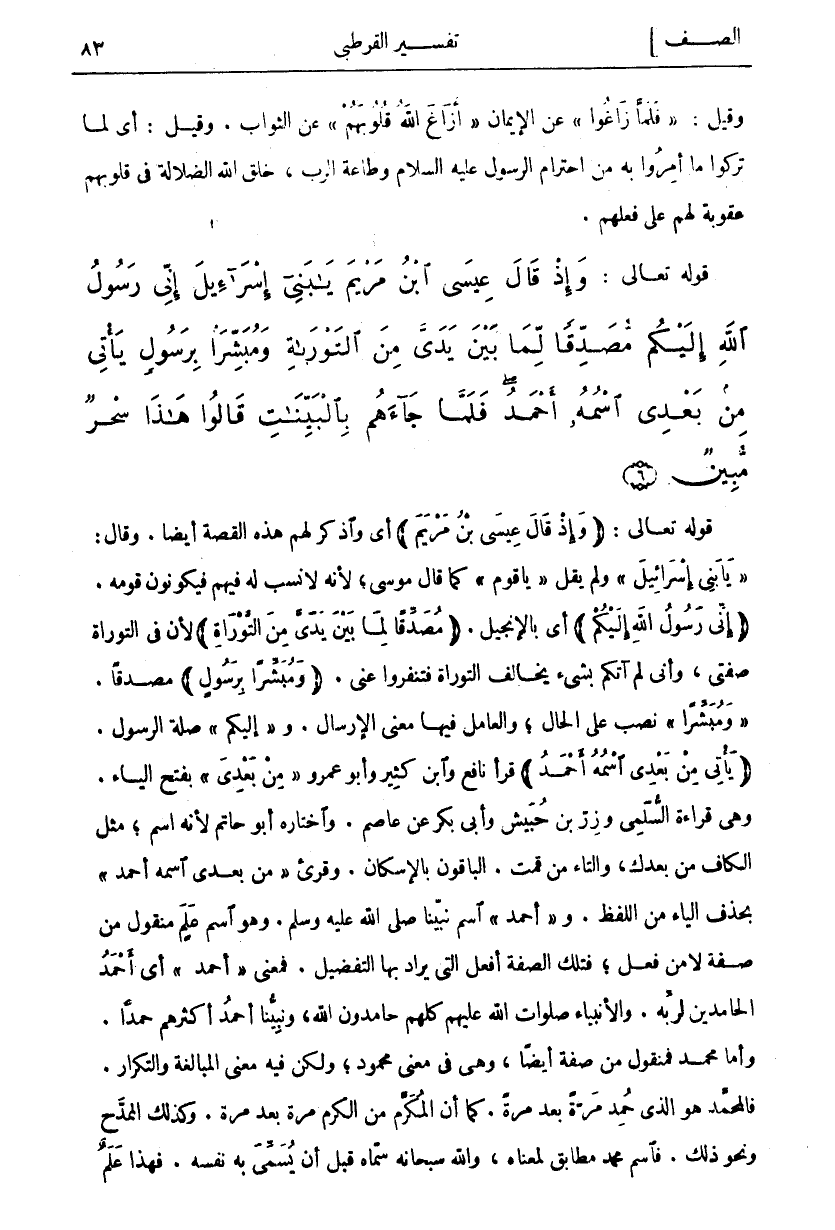 الصف ]	تفسير القرطبي	٨٣
وقيل : « فَلَمَّا زَاغُوا » عن الإيمان « أَزَاغَ اللهُ قُلُوبَهُمْ » عن الثواب . وقيل : أى لما
تركوا ما أُمِرُوا به من احترام الرسول عليه السلام وطاعة الرب ، خلق الله الضلالة فى قلوبهم
عقوبة لهم على فعلهم .
قوله تعالى : وَإِذْ قَالَ عِيسَى ٱبْنُ مَرْيَمَ يَـٰبَنِىٓ إِسْرَٰٓءِيلَ إِنِّى رَسُولُ
ٱللَّهِ إِلَيْكُم مُّصَدِّقًا لِّمَا بَيْنَ يَدَىَّ مِنَ ٱلتَّوْرَىٰةِ وَمُبَشِّرًا بِرَسُولٍ يَأْتِى
مِنۢ بَعْدِى ٱسْمُهُۥٓ أَحْمَدُ ۖ فَلَمَّا جَآءَهُم بِٱلْبَيِّنَـٰتِ قَالُوا هَـٰذَا سِحْرٌ
مُّبِينٌ ٦
قوله تعالى : ﴿ وَإِذْ قَالَ عِيسَى بْنُ مَرْيَمَ ﴾ أى وٱذكر لهم هذه القصة أيضا . وقال:
« يَابَنِى إِسْرَائِيلَ » ولم يقل « ياقوم » كما قال موسى؛ لأنه لانسب له فيهم فيكونون قومه .
﴿ إِنِّى رَسُولُ اللهِ إِلَيْكُمْ ﴾ أى بالإنجيل . ﴿ مُصَدِّقًا لِمَا بَيْنَ يَدَىَّ مِنَ التَّوْرَاةِ ﴾ لأن فى التوراة
صفتى ، وأنى لم آتكم بشىء يخالف التوراة فتنفروا عنى . ﴿ وَمُبَشِّرًا بِرَسُولٍ ﴾ مصدقاً .
« وَمُبَشِّرًا » نصب على الحال ؛ والعامل فيها معنى الإرسال . و « إليكم » صلة الرسول .
﴿ يَأْتِى مِنْ بَعْدِى ٱسْمُهُ أَحْمَدُ ﴾ قرأ نافع وٱبن كثير وأبو عمرو « مِنْ بَعْدِىَ » بفتح الياء .
وهى قراءة السُّلَمِى وزِرّ بن حُبَيش وأبى بكر عن عاصم . وٱختاره أبو حاتم لأنه اسم ؛ مثل
الكاف من بعدك، والتاء من قمت . الباقون بالإسكان . وقرئ « من بعدى ٱسمه أحمد »
بحذف الياء من اللفظ . و « أحمد » ٱسم نبيّنا صلى الله عليه وسلم . وهو ٱسم عَلَم منقول من
صفة لامن فعل ؛ فتلك الصفة أفعل التى يراد بها التفضيل . فمعنى « أحمد » أى أَحْمَدُ
الحامدين لربّه . والأنبياء صلوات الله عليهم كلهم حامدون الله، ونبيُّنا أحمدُ أكثرهم حمدًا .
وأما محمد فمنقول من صفة أيضًا ، وهى فى معنى محمود ؛ ولكن فيه معنى المبالغة والتكرار .
فالمحمَّد هو الذى حُمِد مَرّةً بعد مرةً . كما أن المُكَرَّم من الكرم مرة بعد مرة . وكذلك الممدَّح
ونحو ذلك . فٱسم محمد مطابق لمعناه ، والله سبحانه سمّاه قبل أن يُسَمِّىَ به نفسه . فهذا عَلَمٌ